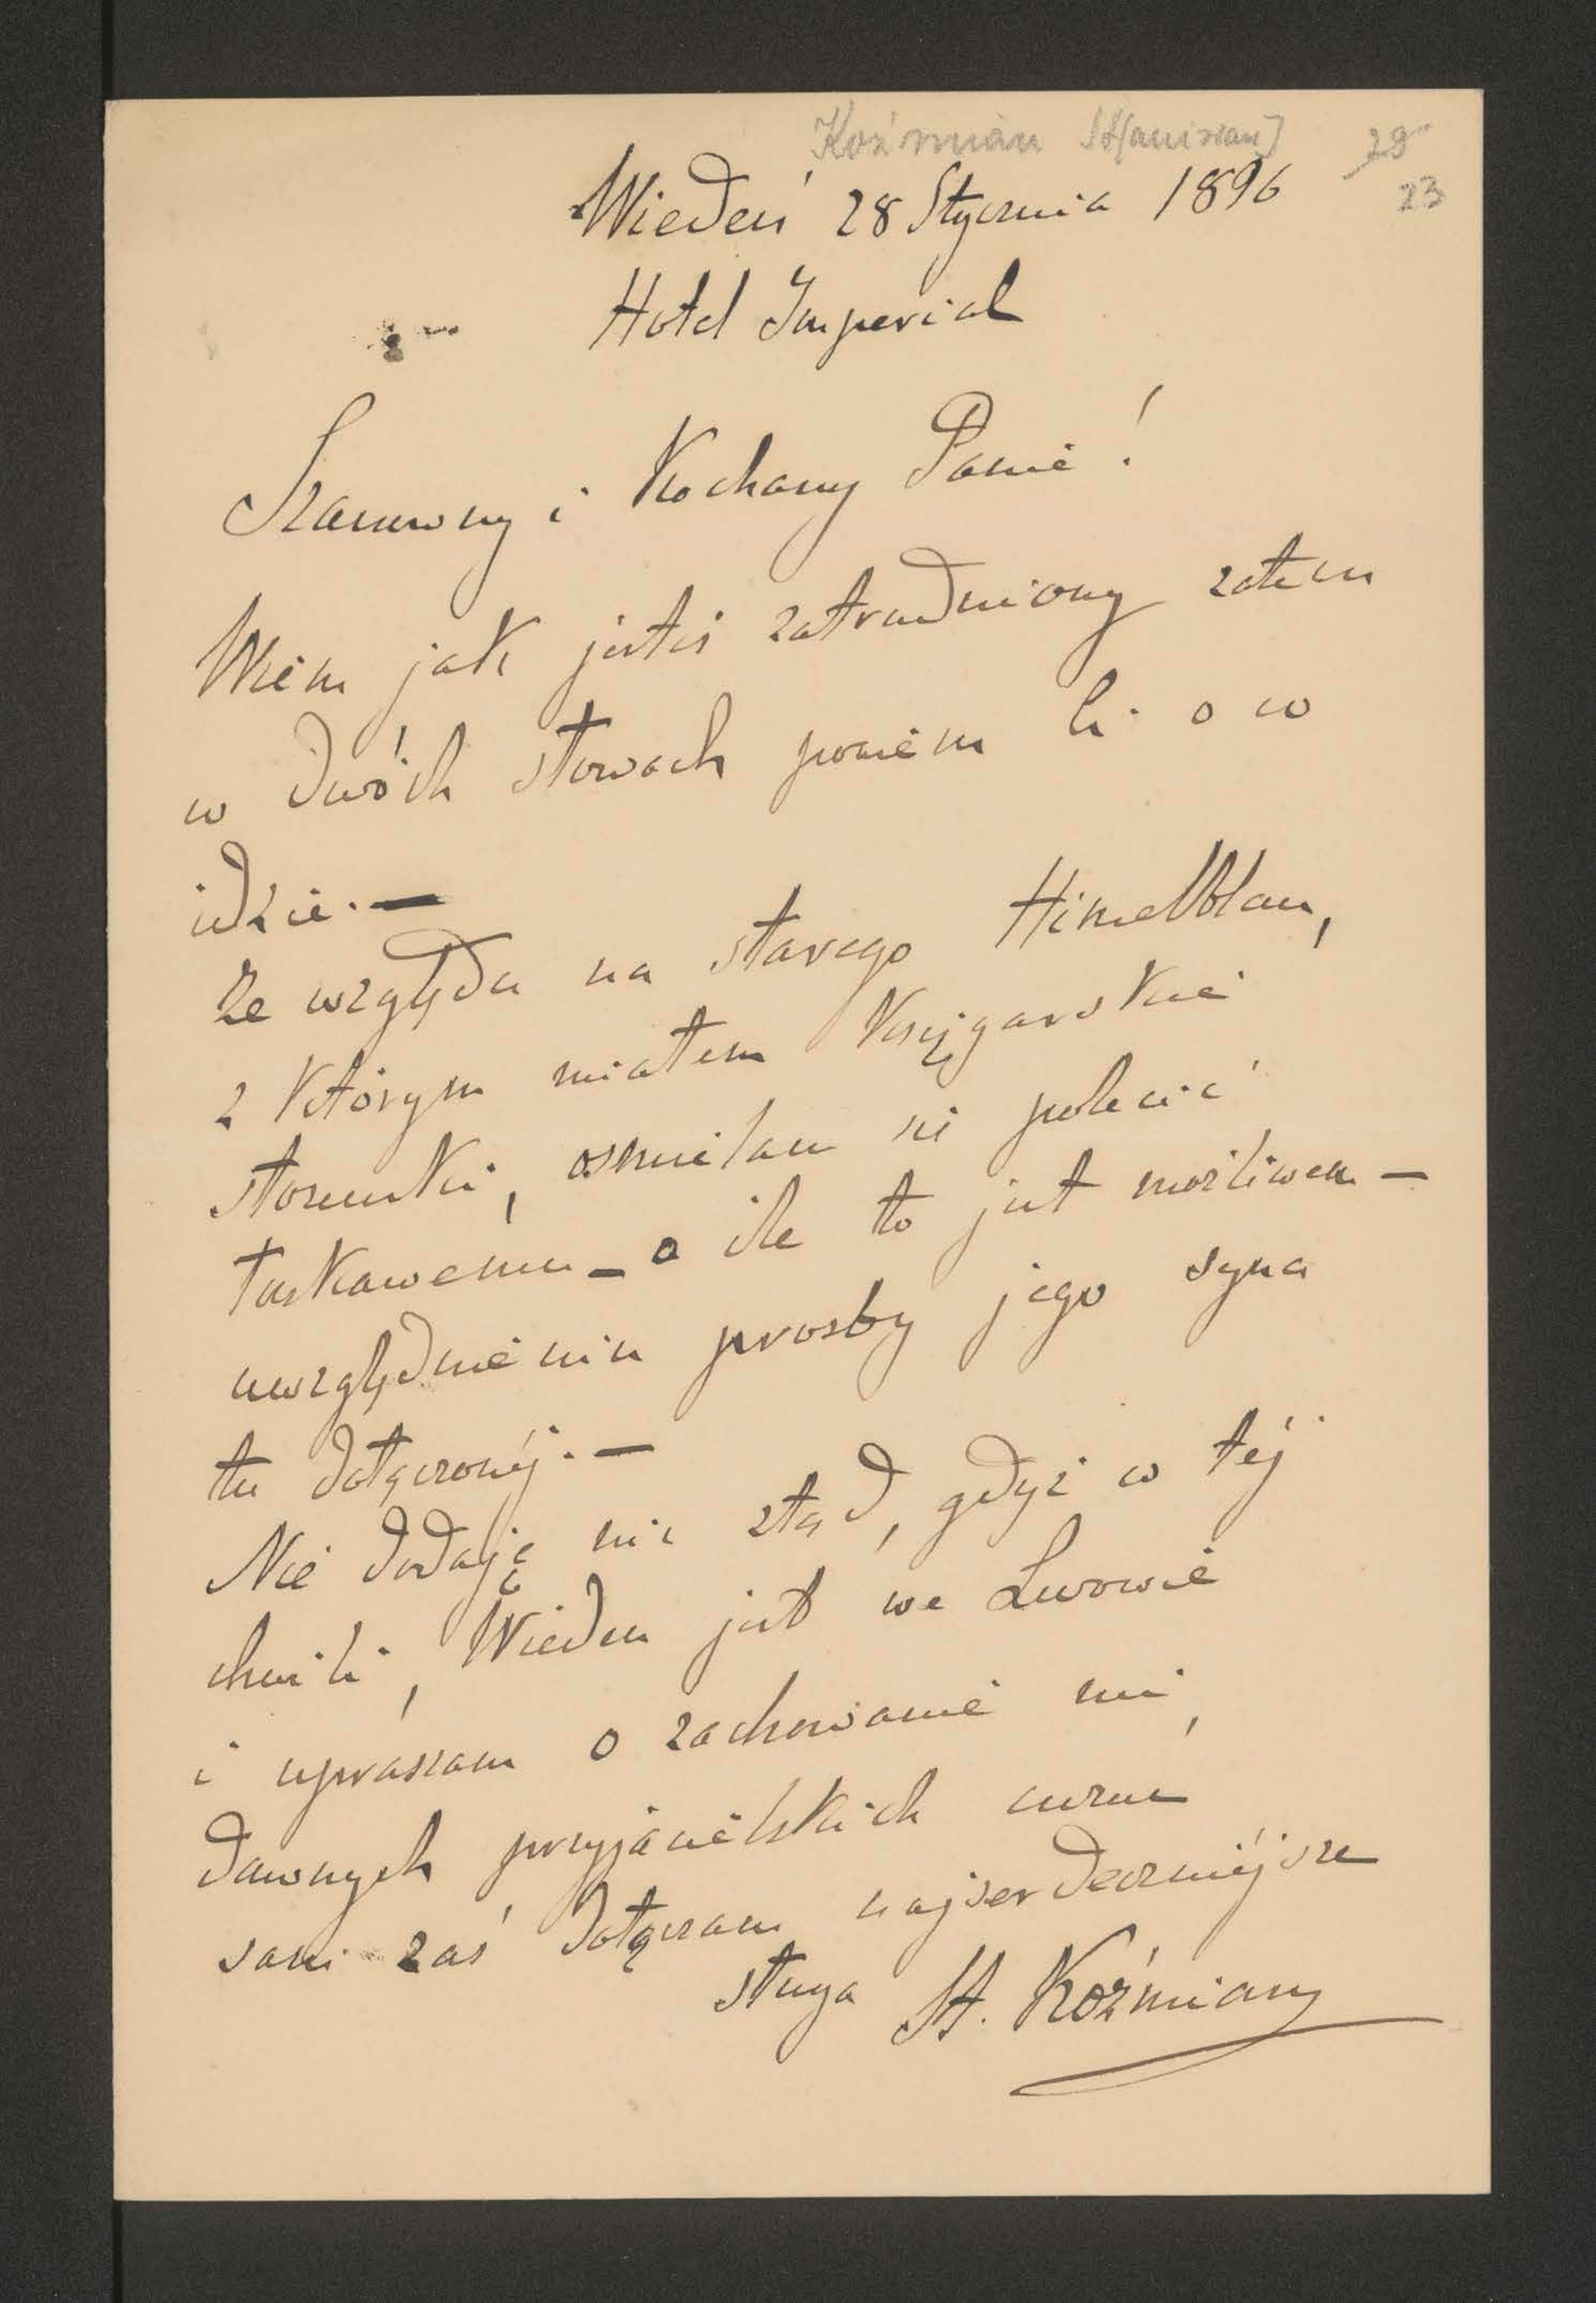 Koźmian St[anisław]
28
23
Wiedeń 28 Stycznia 1896
Hotel Imperial
Szanowny i Kochany Panie!
Wiem jak jesteś zatrudniony zatem
w dwóch słowach powiem Ci o co
idzie. —
Ze względu na starego Himelblau,
z którym miałem księgarskie
stosunki, ośmielam się polecić
łaskawemu — o ile to jest możliwem —
uwzględnieniu prosby jego syna
tu dołączonéj. —
Nie dodaję nic ztąd, gdyż w téj
chwili, Wieden jest we Lwowie
i upraszam o zachowanie mi,
dawnych przyjacielskich uczuć
sam zaś dołączam najserdeczniéjsze
sługa St. Koźmian